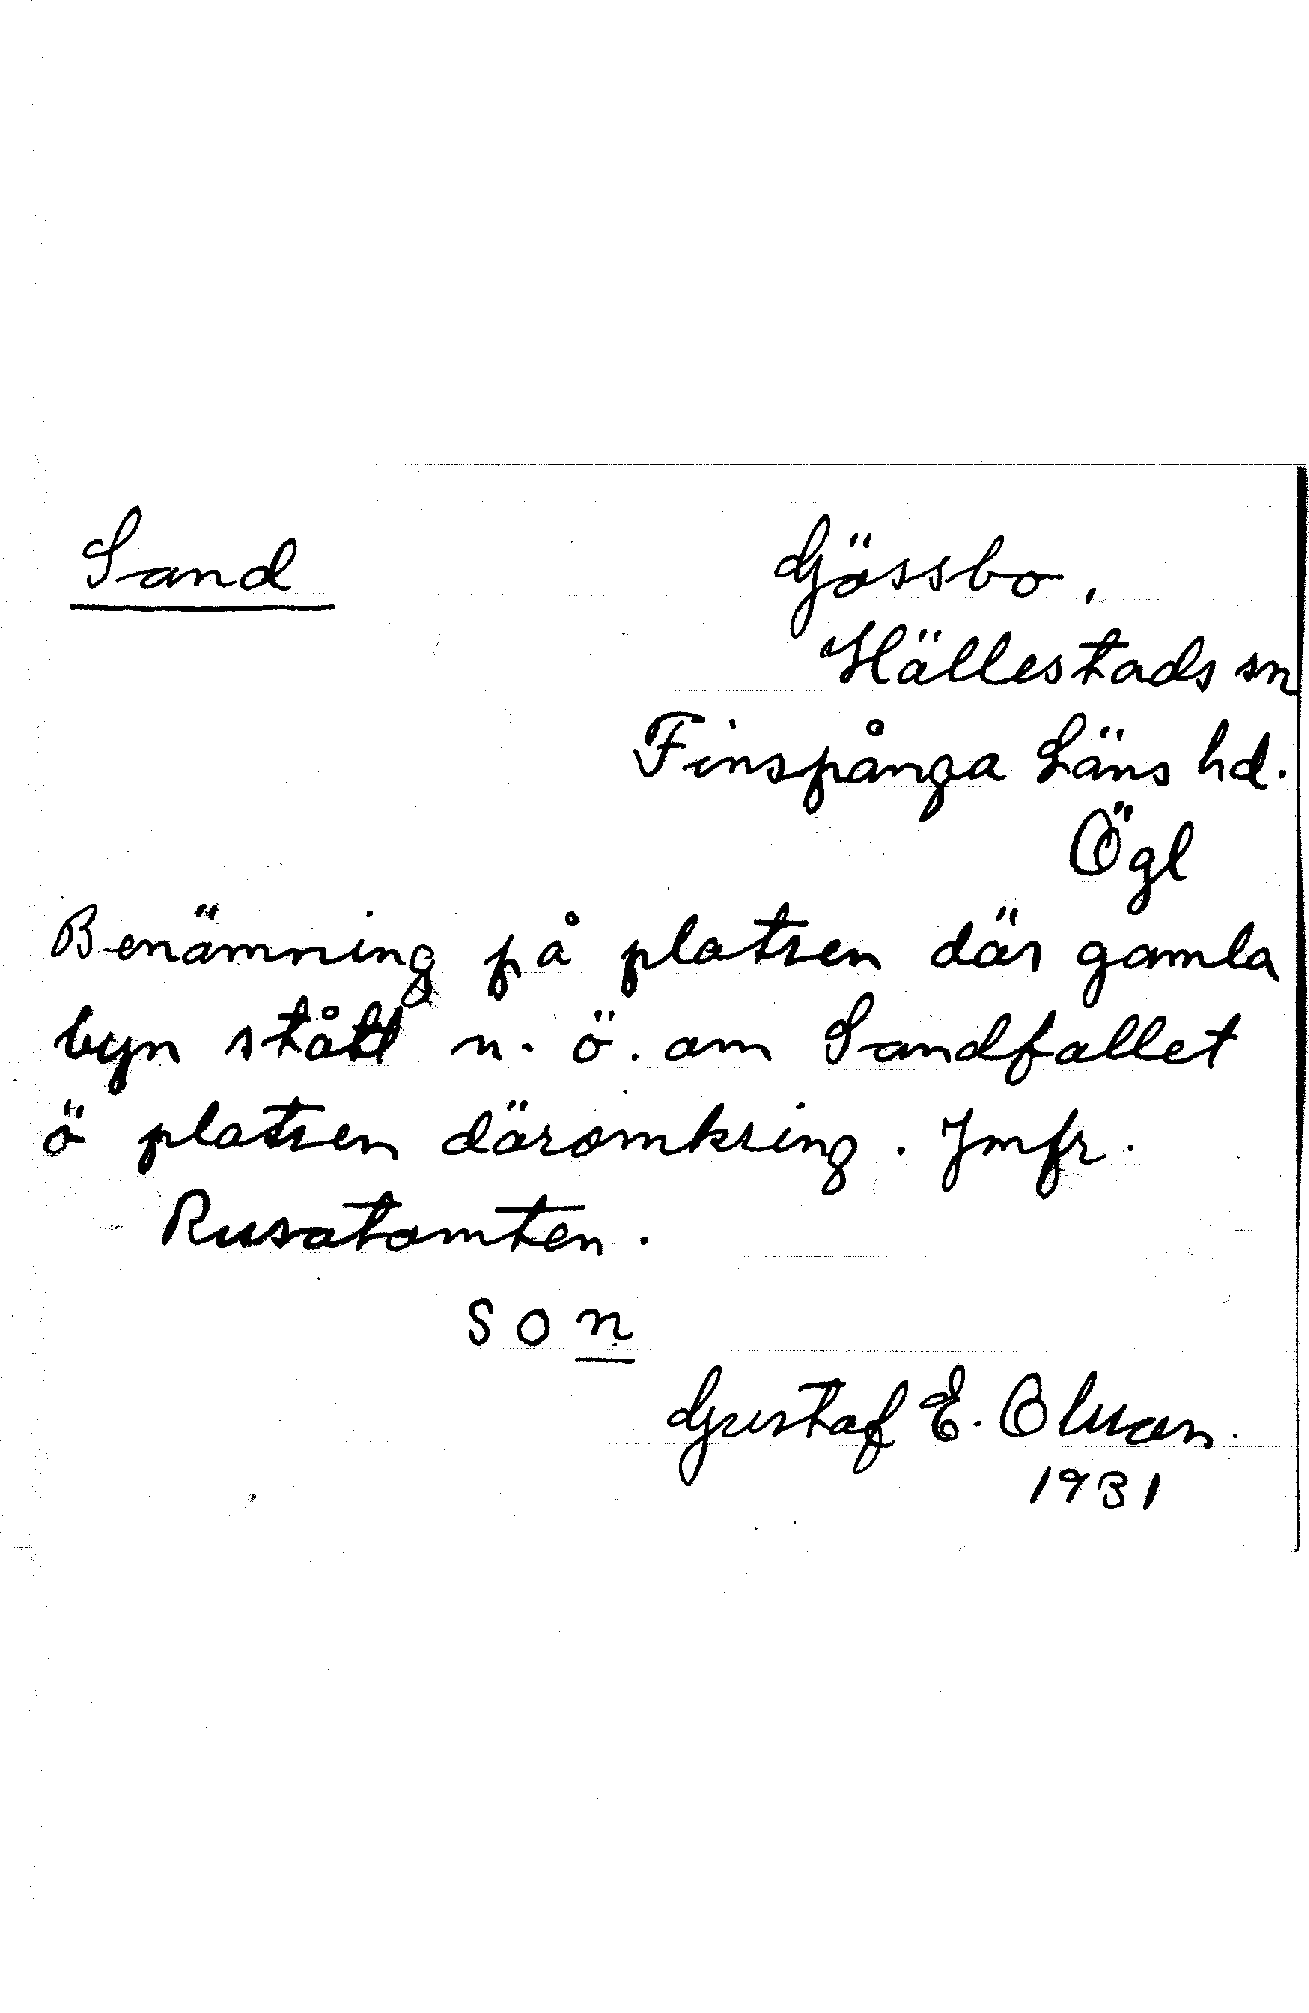 Sand
Gössbo,
Hällestads sn
Finspånga Läns hd.
Ögl
Benämning på platsen där gamla
byn stått n. ö. om Sandfallet
ö platsen däromkring. Jmfr.
Rusatomten.
son
Gustaf E.
1931